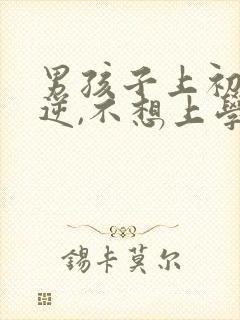 男孩子上初
逆,不想上学
锡卡莫尔